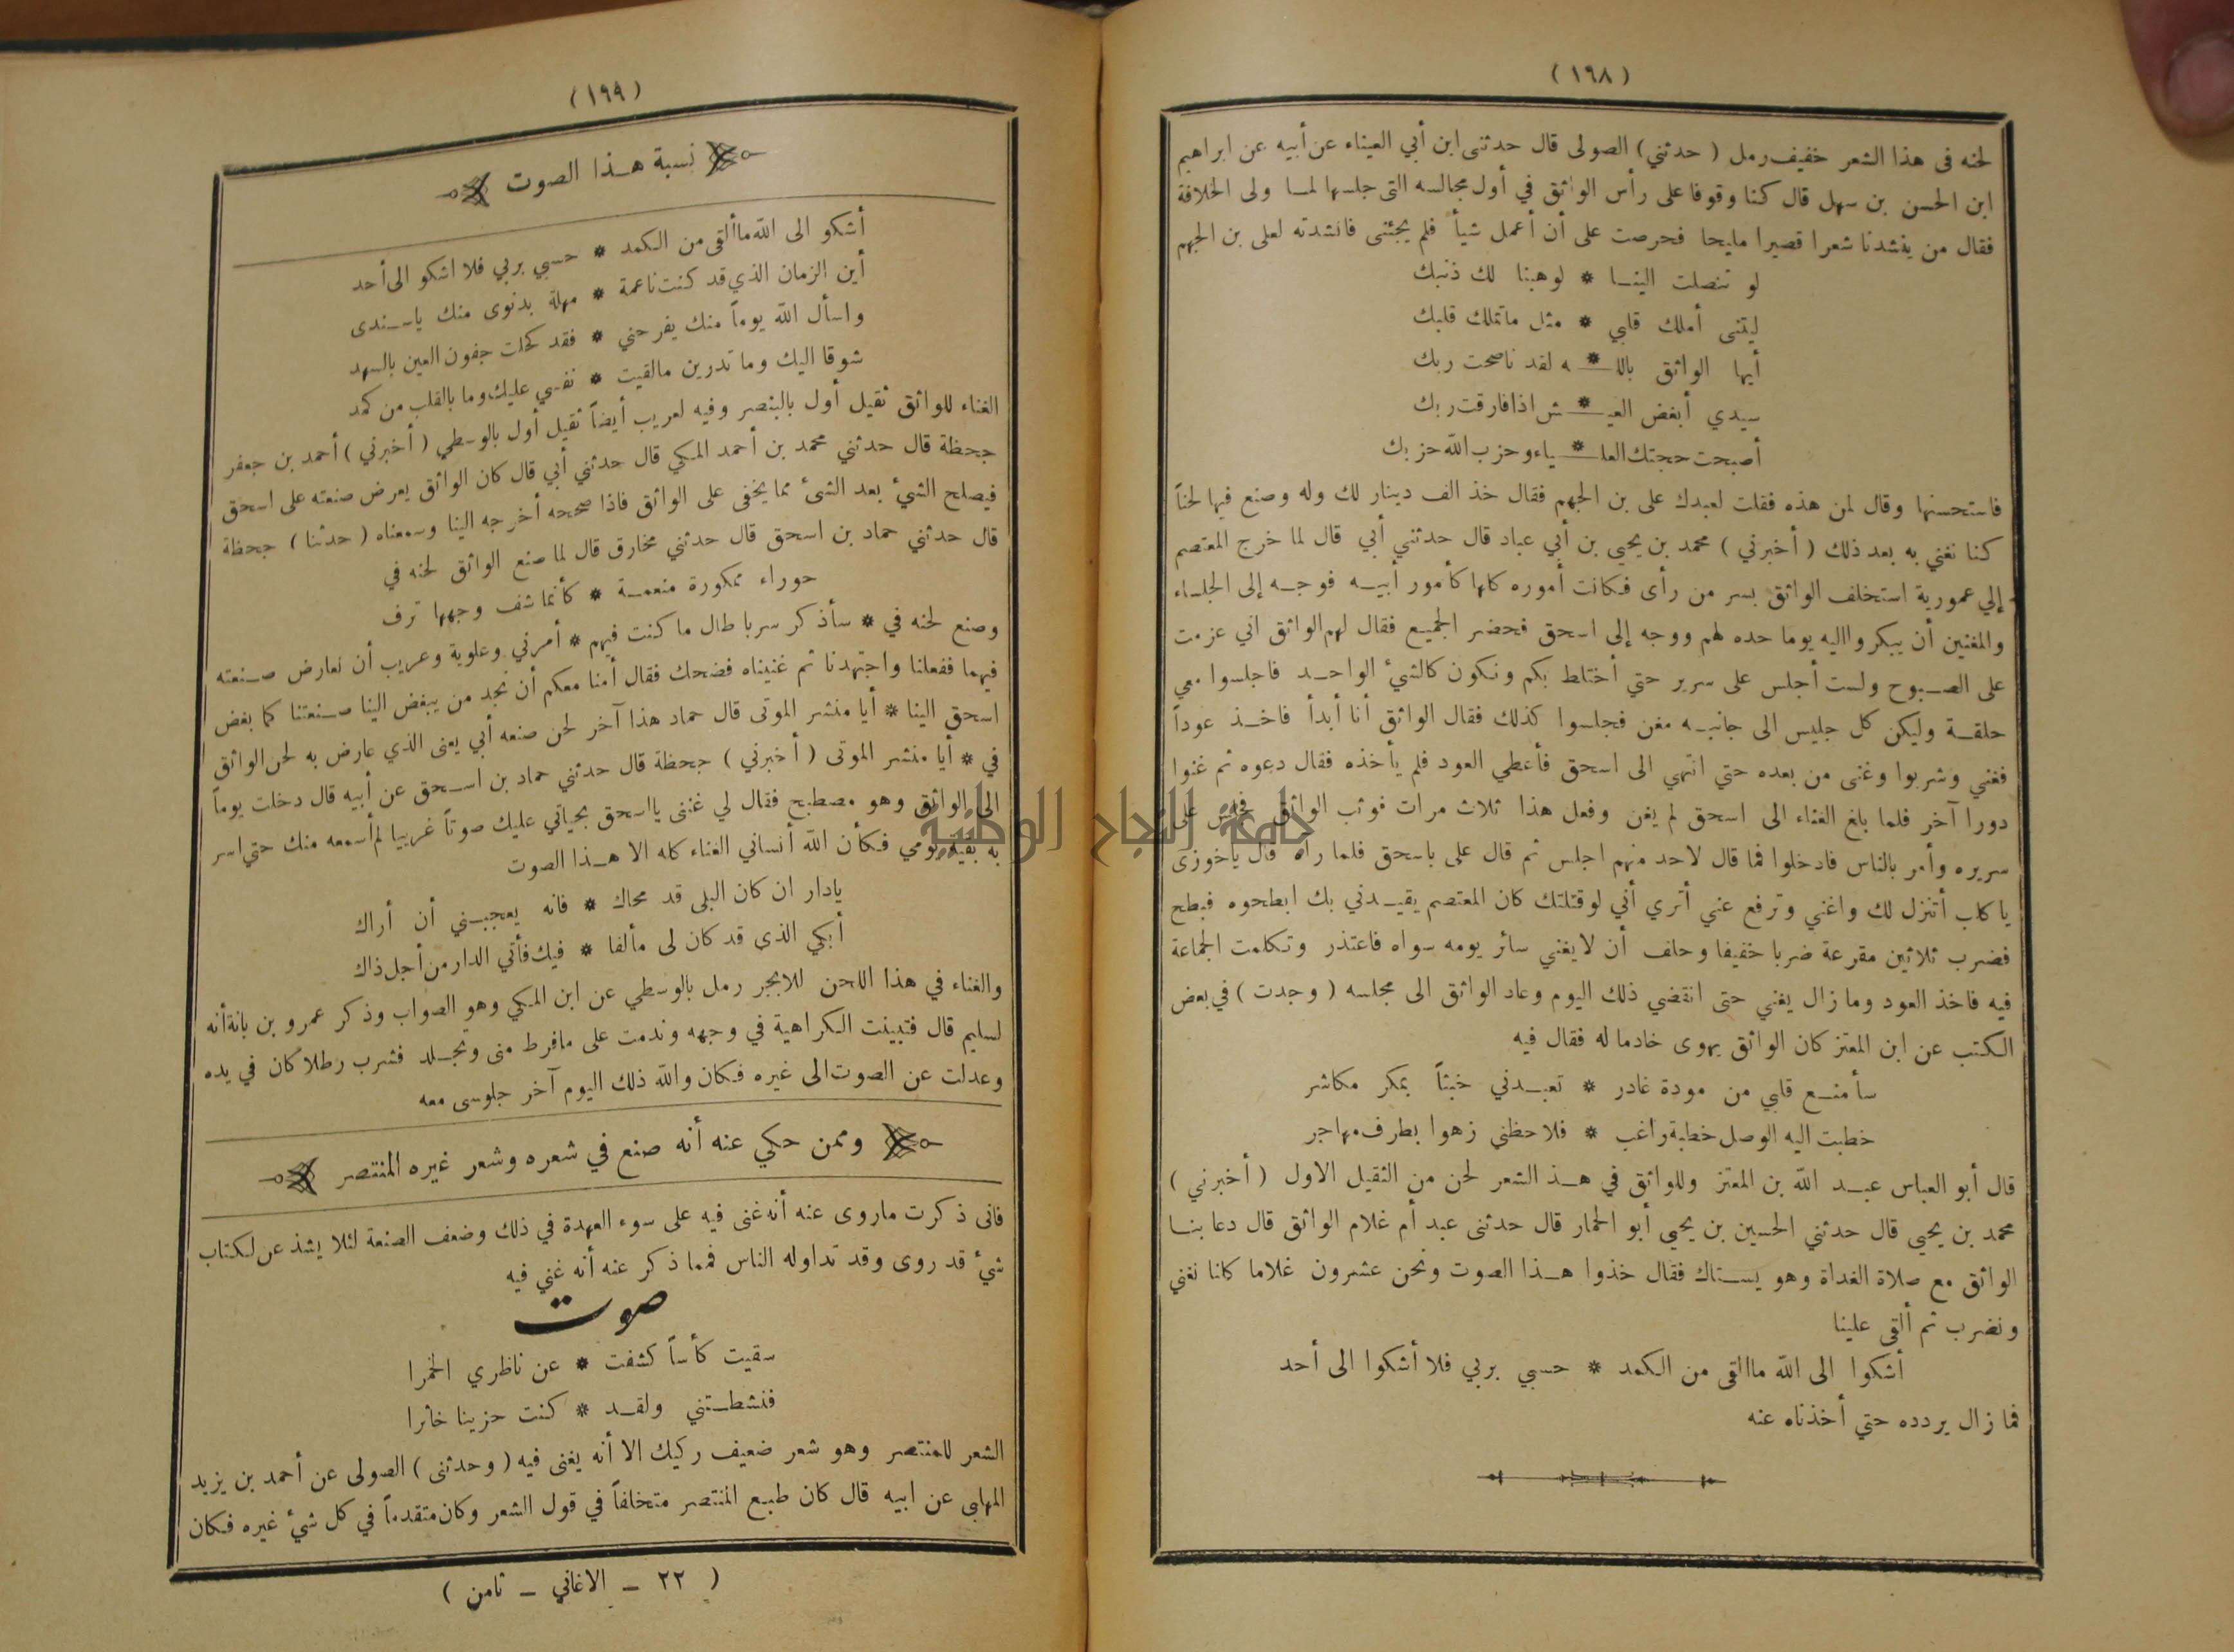 (١٦٨)
لحنه فى هذا الشعر خفيف رمل ( حدثني) الصولى قال حدثنى ابن أبي العيناء عن أبيه عن ابراهيم
ابن الحسن بن سهل قال كنا وقوفا على رأس الواثق في أول مجالسه التى جلسها لمـا ولى الخلافة
فقال من ينشدنا شعرا قصيرا مليحا فحرصت على أن أعمل شيأ فلم يجئنى فانشدته لعلى بن الجهم
لو تنصلت الينـا * لوهبنا لك ذنبك
ليتنى أملك قلبي * مثل ماتملك قلبك
أيها الواثق باللـ * ـه لقد ناصحت ربك
سيدي أبغض العيـ * ـش اذا فارقت ربك
أصبحت حجتك العلـ * ـياء وحزب الله حزبك
فاستحسنها وقال لمن هذه فقلت لعبدك على بن الجهم فقال خذ الف دينار لك وله وصنع فيها لحناً
كنا نغني به بعد ذلك ( أخبرني ) محمد بن يحيى بن أبي عباد قال حدثني أبي قال لما خرج المعتصم
إلي عمورية استخلف الواثق بسر من رأى فكانت أموره كلها كأمور أبيـه فوجـه إلى الجلساء
والمغنين أن يبكروا اليه يوما حده لهم ووجه إلى اسحق فحضر الجميـع فقال لهم الواثق اني عزمت
على الصـبوح ولست أجلس على سرير حتي أختلط بكم ونكون كالشئ الواحـد فاجلسوا معي
حلقـة وليكن كل جليس الى جانبـه مغن فجلسوا كذلك فقال الواثق أنا أبدأ فاخـذ عوداً
فغني وشربوا وغنى من بعده حتي انتهي الى اسحق فأعطي العود فلم يأخذه فقال دعوه ثم غنوا
دورا آخر فلما بلغ الغناء الى اسحق لم يغن وفعل هذا ثلاث مرات فوثب الواثق فجلس على
سريره وأمر بالناس فادخلوا فما قال لاحد منهم اجلس ثم قال على باسحق فلما رآه قال ياخوزى
يا كلب أتنزل لك واغني وترفع عني أتري أني لو قتلتك كان المعتصم يقيـدني بك ابطحوه فبطح
فضرب ثلاثين مقرعة ضربا خفيفا وحلف أن لا يغني سائر يومه سواه فاعتذر وتكلمت الجماعة
فيه فاخذ العود وما زال يغني حتى انقضي ذلك اليوم وعاد الواثق الى مجلسه ( وجدت ) في بعض
الكتب عن ابن المعتز كان الواثق يهوى خادما له فقال فيه
سأمنـع قلبي من مودة غادر * تعبـدني خبثاً بمكر مكاشر
خطبت اليه الوصل خطبة راغب * فلاحظني زهوا بطرف مهاجر
قال أبو العباس عبـد الله بن المعتز وللواثق في هـذ الشعر لحن من الثقيل الاول ( أخبرني )
محمد بن يحيى قال حدثني الحسين بن يحيى أبو الحمار قال حدثنى عبد أم غلام الواثق قال دعا بنـا
الواثق مع صلاة الغداة وهو يسـتاك فقال خذوا هـذا الصوت ونحن عشرون غلاما كلنا نغني
ونضرب ثم ألقى علينا
أشكوا الى الله ماالقى من الكمد * حسبي بربي فلا أشكوا الى أحد
فما زال يردده حتي أخذناه عنه
(١٩٩)
نسبة هـذا الصوت
أشكو الى الله ماألقى من الكمد * حسبي بربي فلا اشكو الى أحد
أين الزمان الذي قد كنت ناعمة * مهلة بدنوى منك ياسـندى
واسأل الله يوماً منك يفرحني * فقد كحلت جفون العين بالسهد
شوقا اليك وما تدرين مالقيت * نفسي عليك وما بالقلب من كمد
الغناء للواثق ثقيل أول بالبنصر وفيه لعريب أيضاً ثقيل أول بالوسطي ( أخبرني ) أحمد بن جعفر
جحظة قال حدثني محمد بن أحمد المكي قال حدثني أبي قال كان الواثق يعرض صنعته على اسحق
فيصلح الشئ بعد الشئ مما يخفى على الواثق فاذا صححه أخرجه الينا وسمعناه ( حدثنا ) جحظة
قال حدثني حماد بن اسحق قال حدثني مخارق قال لما صنع الواثق لحنه في
حوراء ممكورة منعمـة * كأنما شف وجهها ترف
وصنع لحنه في * سأذكر سربا طال ما كنت فيهم * أمرني وعلوية وعريب أن نعارض صـنعته
فيهما ففعلنا واجتهدنا ثم غنيناه فضحك فقال أمنا معكم أن نجد من يبغض الينا صـنعتنا كما بغض
اسحق الينا * أيا منشر الموتى قال حماد هذا آخر لحن صنعه أبي يعنى الذي عارض به لحن الواثق
في * أيا منشر الموتى ( أخبرني ) جحظة قال حدثني حماد بن اسـحق عن أبيه قال دخلت يوماً
الى الواثق وهو مصطبح فقال لي غننى يااسحق بحياتي عليك صوتاً غريبا لم أسمعه منك حتي اسر
به بقية يومي فكأن الله أنساني الغناء كله الا هـذا الصوت
يادار ان كان البلى قد محاك * فانه يعجبـني أن أراك
أبكي الذى قد كان لى مألفا * فيك فأتي الدار من أجل ذاك
والغناء في هذا اللحن للابجر رمل بالوسطي عن ابن المكي وهو الصواب وذكر عمرو بن بانة أنه
لسليم قال فتبينت الكراهية في وجهه وندمت على مافرط منى وتجـلد فشرب رطلا كان في يده
وعدلت عن الصوت الى غيره فكان والله ذلك اليوم آخر جلوسى معه
وممن حكي عنه أنه صنع في شعره وشعر غيره المنتصر
فانى ذكرت ماروى عنه أنه غنى فيه على سوء العهدة في ذلك وضعف الصنعة لئلا يشذ عن الكتاب
شئ قد روى وقد تداوله الناس فمما ذكر عنه أنه غني فيه
صوت
سقيت كأساً كشفت * عن ناظري الخمرا
فنشطـتني ولقـد * كنت حزينا خاثرا
الشعر للمنتصر وهو شعر ضعيف ركيك الا أنه يغنى فيه ( وحدثنى ) الصولى عن أحمد بن يزيد
المهلبى عن ابيه قال كان طبـع المنتصر متخلفاً في قول الشعر وكان متقدماً في كل شئ غيره فكان
( ٢٢ ــ الاغاني ــ ثامن )
جامعة النجاح الوطنية